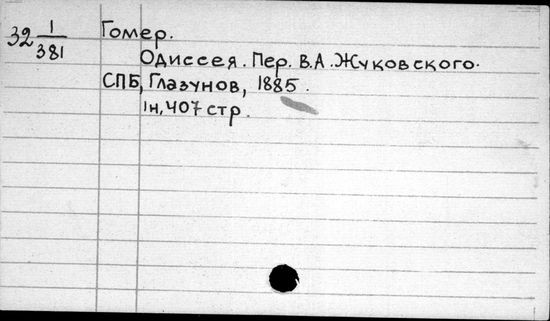 32 1/381 Гомер.
Одиссея. Пер. В.А. Жуковского.
СПБ, Глазунов, 1885.
1н, 407 стр.